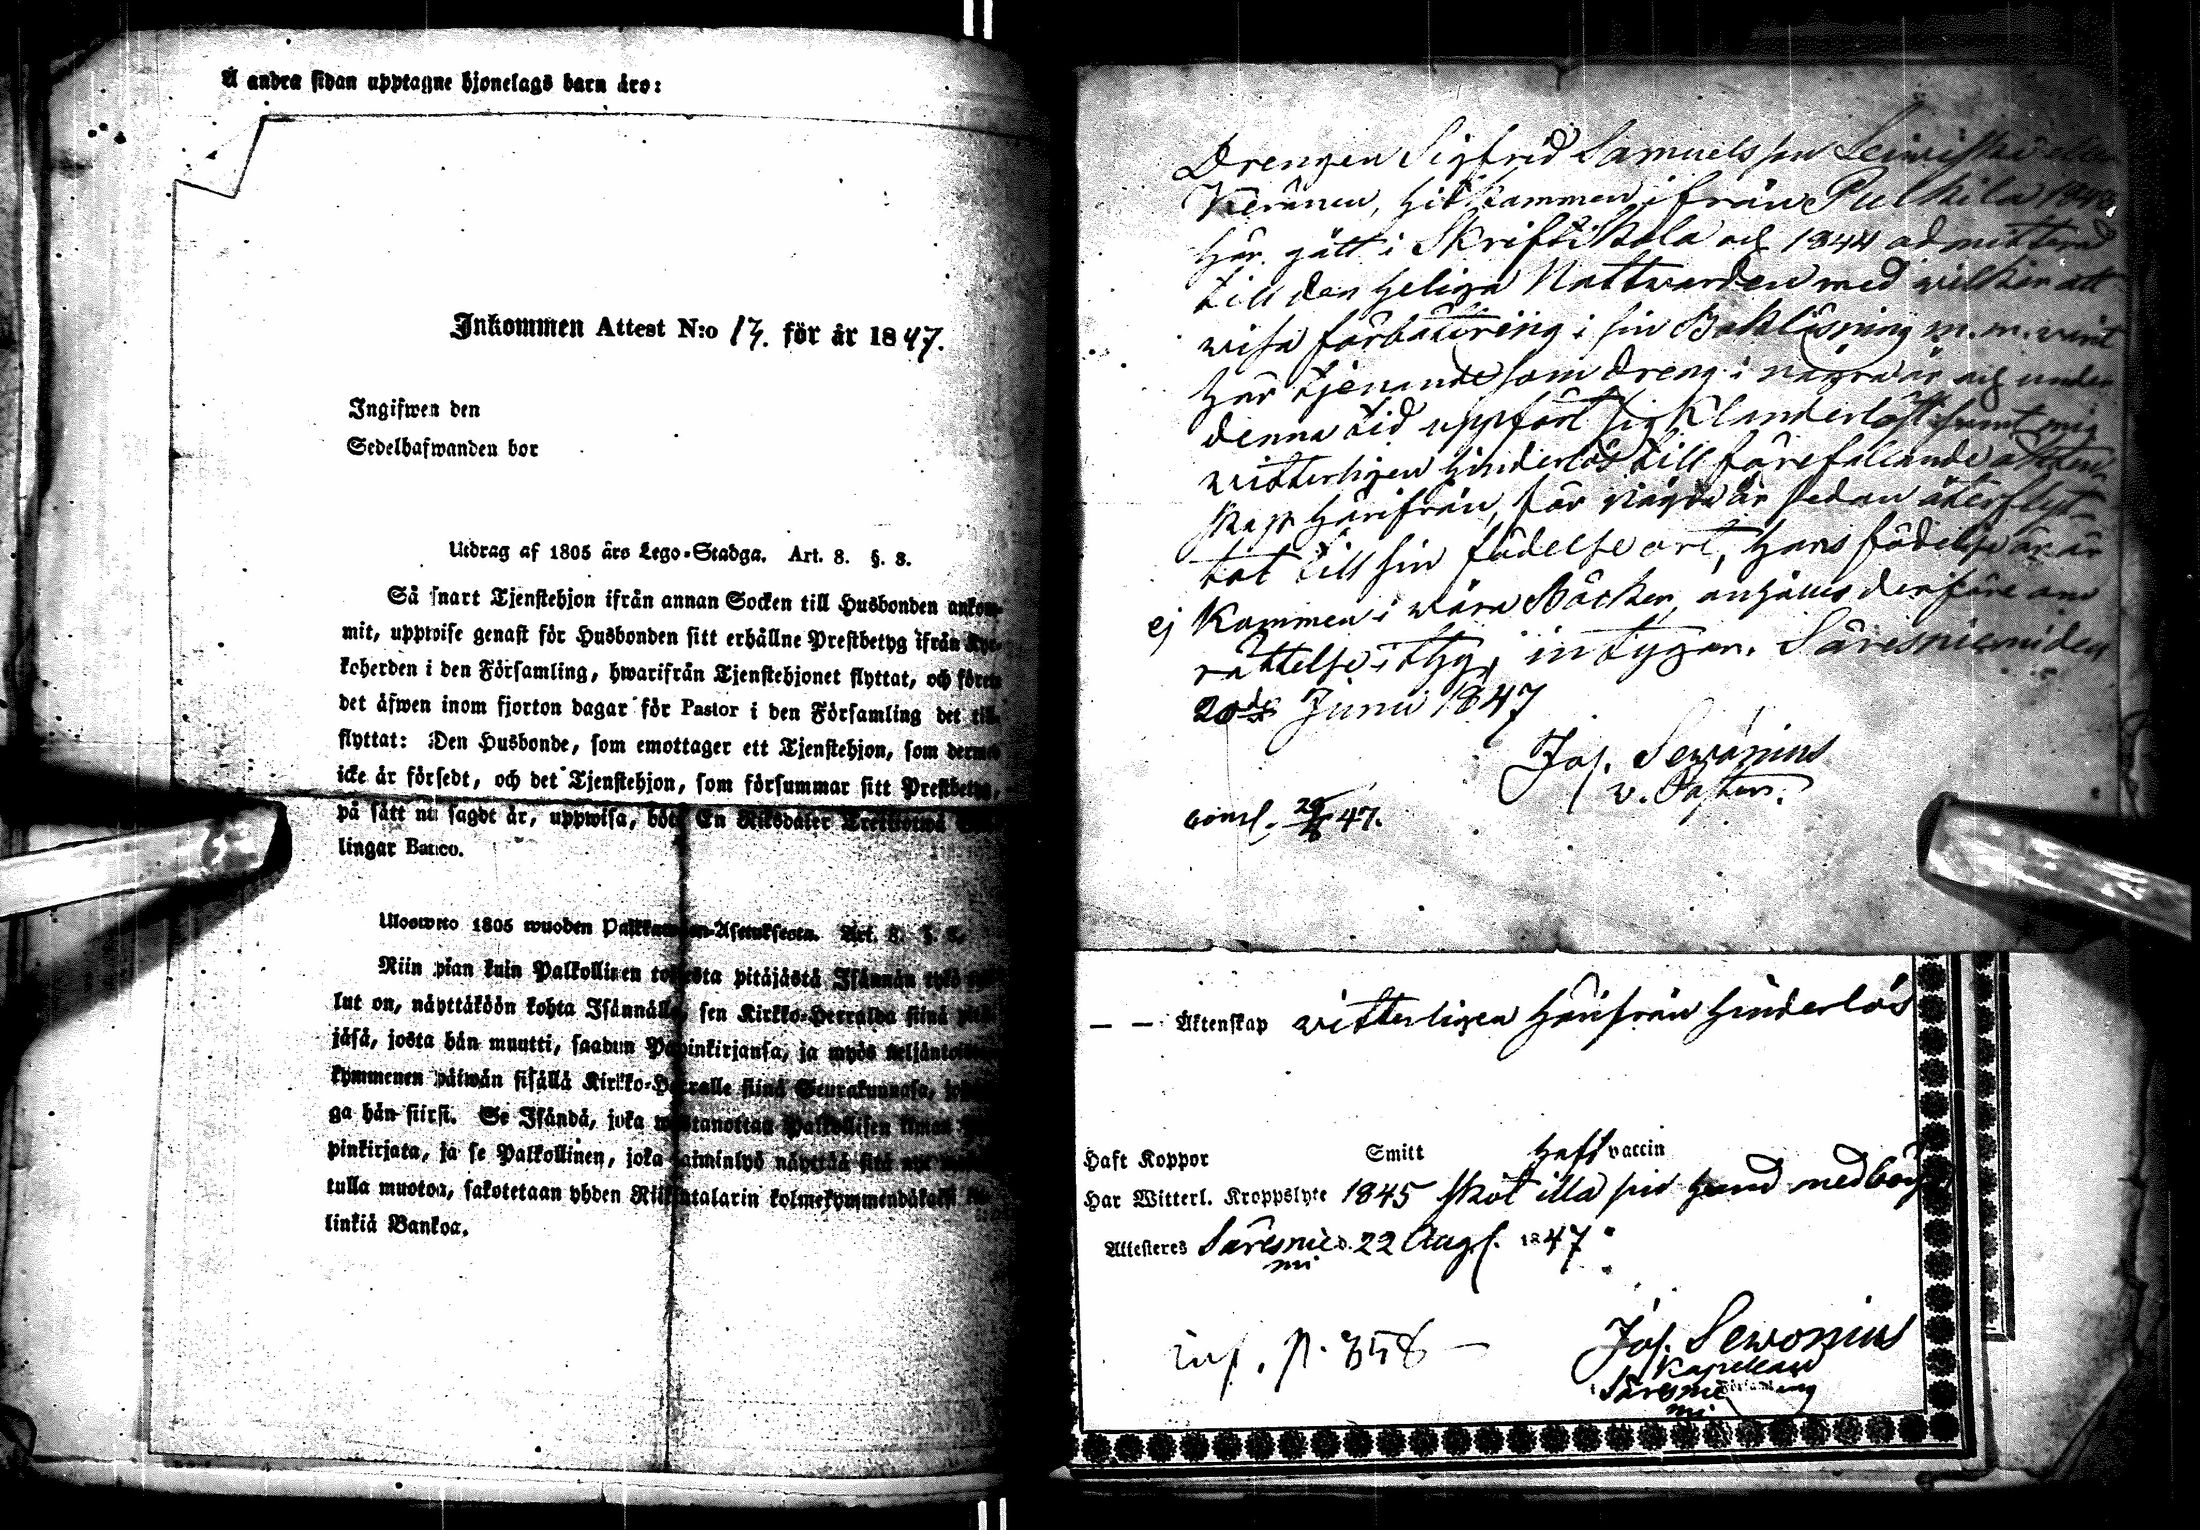 Å andra sidan upptagne hjonelags barn äro:
Inkommen Attest N:o 17. för år 1847.
Ingifwen den
Sedelhafwanden bor
Utdrag af 1805 års Lego-Stadga. Art. 8. §. 8.
Så snart Tjenstehjon ifrån annan Socken till Husbonden ankom-
mit, uppwise genast för Husbonden sitt erhållne Prestbetyg ifrån Kyr-
koherden i den Församling, hwarifrån Tjenstehjonet flyttat, och förete
det äfwen inom fjorton dagar för Pastor i den Församling det till-
flyttat: Den Husbonde, som emottager ett Tjenstehjon, som dermed
icke är försedt, och det Tjenstehjon, som försummar sitt Prestbetyg,
på sätt nu sagdt är, uppwisa, böte En Riksdaler Trettiotwå
lingar Banco.
Ulosweto 1805 wuoden Palkkawäen-Asetuksesta. Art. 8. §.
Niin pian kuin Palkollinen toisesta pitäjästä Isännän tykö
lut on, näyttäköön kohta Isännälle, sen Kirkko-Herralda siinä pitä-
jäsä, josta hän muutti, saadun Papinkirjansa, ja myös neljäntoista-
kymmenen päiwän sisällä Kirkko-Herralle siinä Seurakunnasa,
ga hän siirsi. Se Isändä, joka wastanottaa Palkollisen ilman
pinkirjata, ja se Palkollinen, joka laiminlyö näyttää sitä nyt
tulla muoton, sakotetaan yhden Riikintalarin kolmekymmendäkaksi
linkiä Bankoa.
Drengen Sigfrid Samuelsson Leiwiskä eller
Keränen, hitkommen ifrån Pulkila
har gått i Skriftskola och 1844 admitterad
till den heliga Nattwarden med wilkor att
wisa förbättring i sin Bokläsning m.m. warit
här tjenande som dreng i några år och under
denna tid uppfört sig Klanderlöst samt mig
witterligen hinderlös till förefallande äkten-
skap härifrån, för några år sedan återflyt-
tat till sin födelse ort, hans födelse år är
ej Kommen i wåra Böcker, anhålles derföre om
rättelse i thy, intygar. Säresniemi den
20de Junii 1847
Joh. Sewonius
v. Pastor.
29/8 47.
— — Äktenskap witterligen härifrån hinderlös
Haft Koppor Smitt haft vaccin
Har Witterl. Kroppslyte 1845 sköt illa sin hand med böss
Attesteres Säresnie- d. 22 Aug. 1847
mi
inf. p. 358 —
Joh. Sewonius
Kapellan
Säresnie Församling
mi